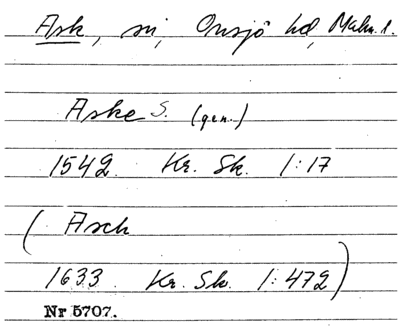 Ask, sn, Onsjö hd, Malm. l.
Aske S. (gen.)
1542. Kr. Sk. 1:17
( Asch
1633. Kr. Sk. 1:472)
Nr 5707.